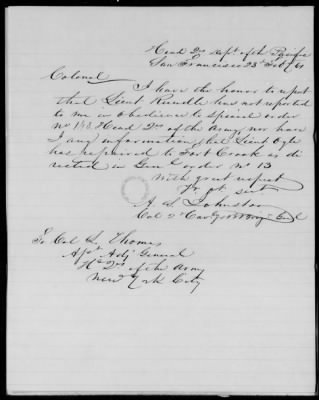 Head Qrs Dept. of the Pacific
San Francisco 23d Feb /61
Colonel
I have the honor to report
that Lieut Rundle has not reported
to me in obedience to special order
No Head Qrs of the Army, nor have
I any information that Lieut Ogle
has repaired to Fort Crook as di
rected in Genl order No 13
With great respect
Yr obt svt
A. S. Johnston
Col 2d Cav &
To Col L. Thomas
Asst Adj General
Hd Qrs of the Army
New York City